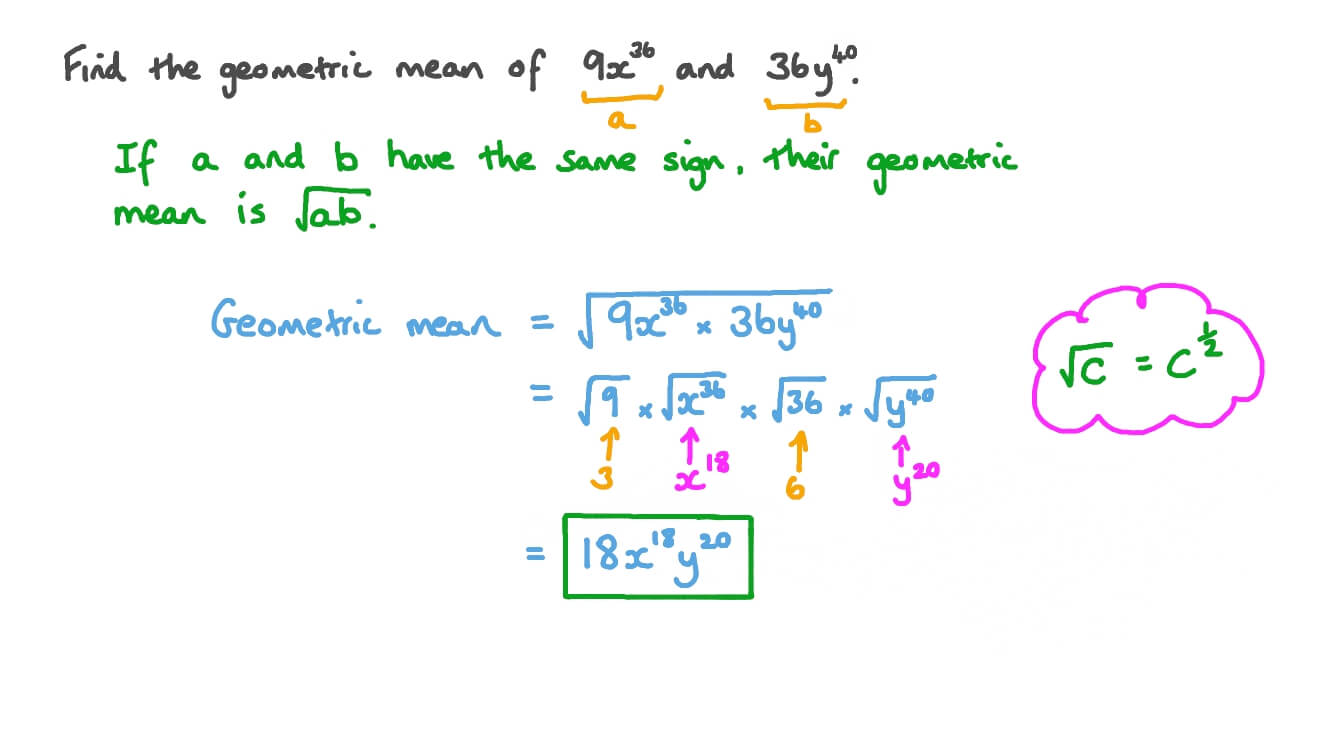 Find the geometric mean of 9x³⁶ and 36y⁴⁰.
a b
If a and b have the same sign, their geometric
mean is √ab.
Geometric mean = √9x³⁶ × 36y⁴⁰
√c = c^½
= √9 × √x³⁶ × √36 × √y⁴⁰
3 x¹⁸ 6 y²⁰
= 18x¹⁸y²⁰